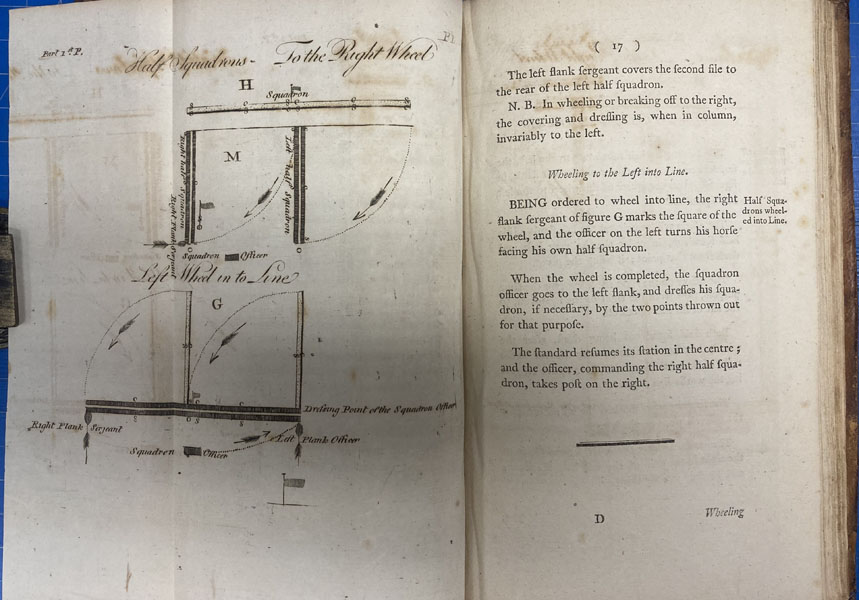 Part 1st P.
Half Squadrons - To the Right Wheel
H
Squadron
M
Right half Squadron
Left half Squadron
Right Flank Serjeant
Squadron Officer
Left Wheel in to Line
G
Dressing Point of the Squadron Officer
Right Flank Serjeant
Left Flank Officer
Squadron Officer
( 17 )
The left flank ſergeant covers the ſecond file to
the rear of the left half ſquadron.
N. B. In wheeling or breaking off to the right,
the covering and dreſſing is, when in column,
invariably to the left.
Wheeling to the Left into Line.
BEING ordered to wheel into line, the right
flank ſergeant of figure G marks the ſquare of the
wheel, and the officer on the left turns his horſe
facing his own half ſquadron.
Half Squa-
drons wheel-
ed into Line.
When the wheel is completed, the ſquadron
officer goes to the left flank, and dreſſes his ſqua-
dron, if neceſſary, by the two points thrown out
for that purpoſe.
The ſtandard reſumes its ſtation in the centre;
and the officer, commanding the right half ſqua-
dron, takes poſt on the right.
D
Wheeling